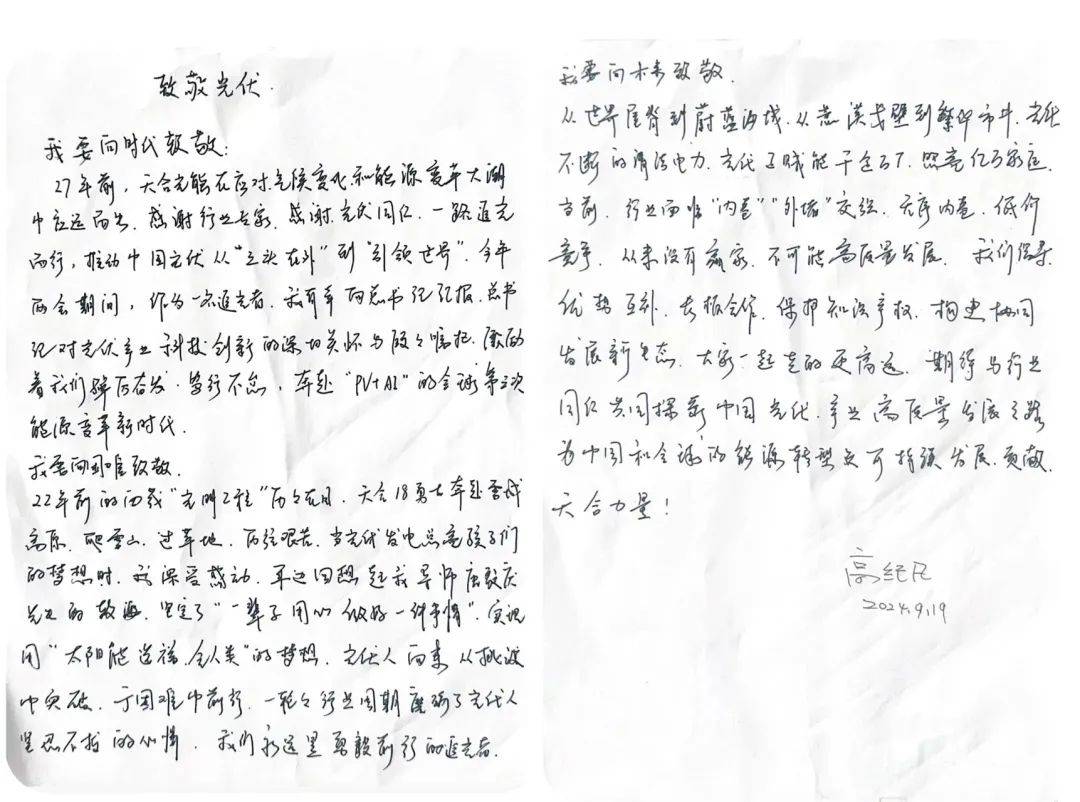 致敬光伏.
我要向时代致敬:
27年前，天合光能在应对气候变化和能源变革大潮
中应运而生。感谢行业专家、感谢光伏同仁，一路追光
而行，推动中国光伏从“三头在外”到“引领世界”。今年
两会期间，作为一名追光者，我有幸向总书记汇报，总书
记对光伏产业科技创新的深切关怀与殷殷嘱托，激励
着我们踔厉奋发、笃行不怠，奔赴“PV+AI”的全球第三次
能源变革新时代.
我要向困难致敬.
22年前的西藏“光明工程”历历在目，天合18勇士奔赴雪域
高原、爬雪山、过草地、历经艰苦，当光伏发电点亮孩子们
的梦想时，我深受感动，耳边回想起我导师唐敖庆
先生的教诲，坚定了“一辈子用心做好一件事情”，实现
用“太阳能造福全人类”的梦想。光伏人向来从挑战
中突破，于困难中前行，一轮轮行业周期磨砺了光伏人
坚忍不拔的心性，我们永远是勇毅前行的追光者.
我要向未来致敬.
从世界屋脊到蔚蓝海域、从荒漠戈壁到繁华市井，光伏
不断的清洁电力，光伏+赋能千企万户，照亮亿万家庭
当前，行业面临“内卷”“外堵”交织，无序内卷、低价
竞争，从来没有赢家，不可能高质量发展。我们倡导
优势互补、长板合作、保护知识产权、构建协同
发展新生态，大家一起走的更高远。期待与行业
同仁共同探索中国光伏产业高质量发展之路
为中国和全球的能源转型及可持续发展，贡献
天合力量！
高纪凡
2024.9.19